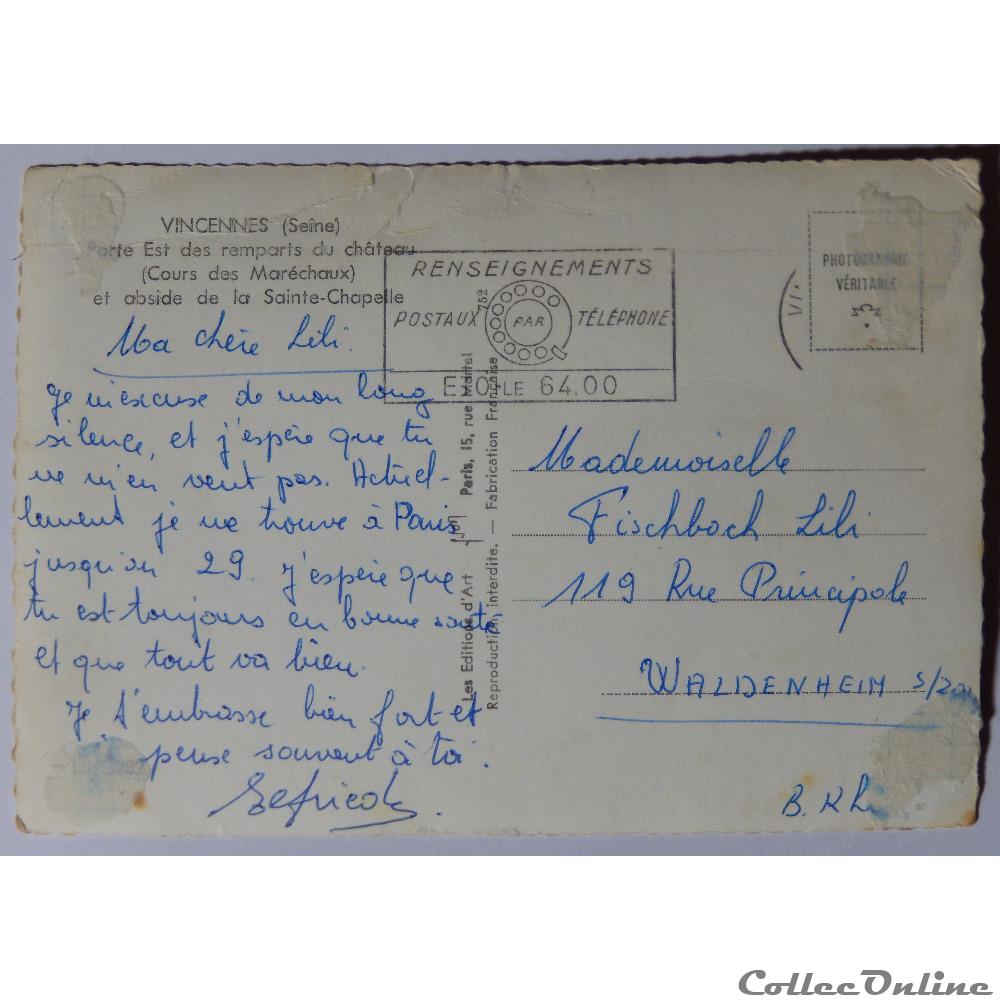 VINCENNES (Seine)
Porte Est des remparts du château
(Cours des Maréchaux)
et abside de la Sainte-Chapelle
RENSEIGNEMENTS
POSTAUX 752 PAR TÉLÉPHONE
64.00
PHOTOGRAPHIE
VÉRITABLE
Ma chère Lili.
Je m'excuse de mon long
silence, et j'espère que tu
ne m'en veut pas. Actuel-
lement je me trouve à Paris
jusqu'au 29. J'espère que
tu est toujours en bonne santé
et que tout va bien.
Je t'embrasse bien fort et
pense souvent à toi.
Les Editions d'Art Yvon Paris, 15, rue Martel
Reproduction interdite. — Fabrication Française
Mademoiselle
Fischbach Lili
119 Rue Principale
WALDENHEIM s/Zorn
B. Rh
CollecOnline